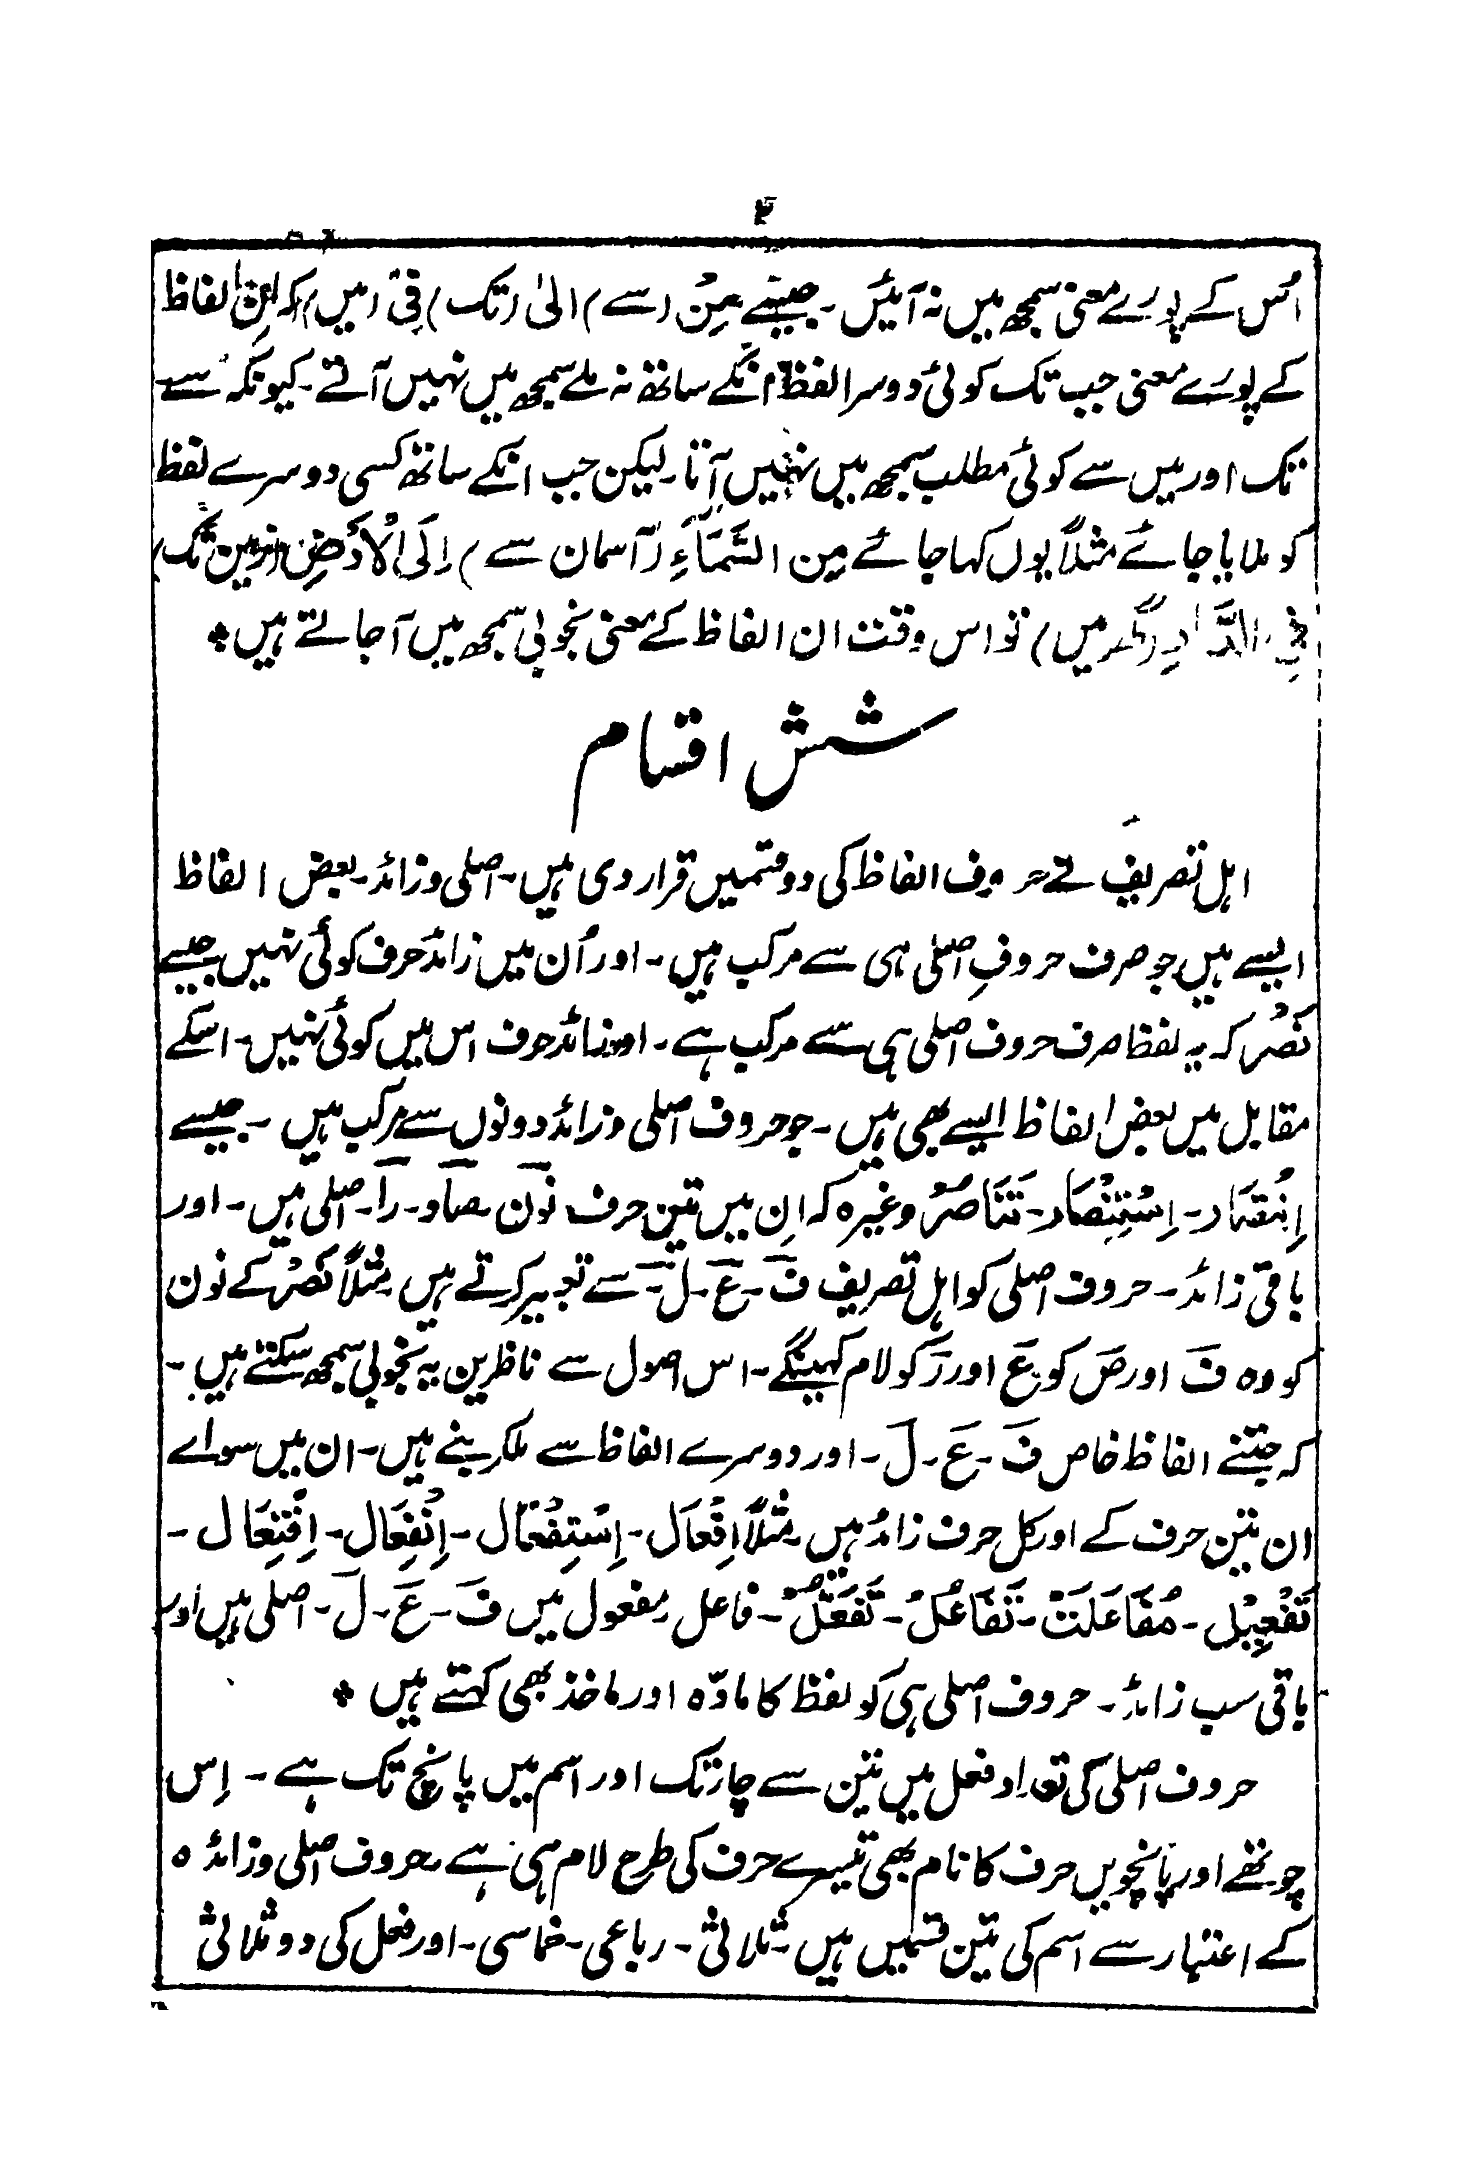 ۴
اُس کے پورے معنی سمجھ میں نہ آئیں ۔ جیسے مِنْ (سے) الیٰ (تک) فِیْ (میں) کہ اِن الفاظ
کے پورے معنی جب تک کوئی دوسرا لفظ انکے ساتھ نہ ملے سمجھ میں نہیں آتے ۔ کیونکہ سے
تک اور میں سے کوئی مطلب سمجھ میں نہیں آتا ۔ لیکن جب انکے ساتھ کسی دوسرے لفظ
کو ملایا جائے مثلاً یوں کہا جائے مِن السَّمَآءِ (آسمان سے) اِلَی الْاَرْضِ (زمین تک)
فِی الدَّارِ (گھر میں) تو اس وقت ان الفاظ کے معنی بخوبی سمجھ میں آجاتے ہیں *
شش اقسام
اہل تصریف نے حروف الفاظ کی دو قسمیں قرار دی ہیں ۔ اصلی و زائد ۔ بعض الفاظ
ایسے ہیں جو صرف حروفِ اصلی ہی سے مرکب ہیں ۔ اور اُن میں زائد حرف کوئی نہیں جیسے
نَصْر کہ یہ لفظ صرف حروف اصلی ہی سے مرکب ہے ۔ اور زائد حرف اس میں کوئی نہیں ۔ اسکے
مقابل میں بعض الفاظ ایسے بھی ہیں ۔ جو حروف اصلی و زائد دونوں سے مرکب ہیں ۔ جیسے
اِنْتِصَار ۔ اِسْتِنْصَار ۔ تَنَاصُرْ وغیرہ کہ اِن میں تین حرف نون ۔ صاد ۔ را ۔ اصلی ہیں ۔ اور
باقی زائد ۔ حروف اصلی کو اہل تصریف فَ ۔ عَ ۔ لَ ۔ سے تعبیر کرتے ہیں مثلاً نَصْر کے نون
کو وہ فَ اور صَ کو عَ اور رَ کو لام کہینگے ۔ اس اصول سے ناظرین یہ بخوبی سمجھ سکتے ہیں ۔
کہ جتنے الفاظ خاص فَ ۔ عَ ۔ لَ ۔ اور دوسرے الفاظ سے ملکر بنے ہیں ۔ ان میں سواے
ان تین حرف کے اور کل حرف زائد ہیں مثلاً اِفْعَال ۔ اِسْتِفْعَال ۔ اِنْفِعَال ۔ اِفْتِعَال ۔
تَفْعِیْل ۔ مُفَاعَلَتْ ۔ تَفَاعُلْ ۔ تَفَعُّلْ ۔ فاعل مفعول میں فَ ۔ عَ ۔ لَ ۔ اصلی ہیں اور
باقی سب زائد ۔ حروف اصلی ہی کو لفظ کا مادّہ اور ماخذ بھی کہتے ہیں *
حروف اصلی کی تعداد فعل میں تین سے چار تک اور اسم میں پانچ تک ہے ۔ اِس
چوتھے اور پانچویں حرف کا نام بھی تیسرے حرف کی طرح لام ہی ہے ۔ حروف اصلی و زائدہ
کے اعتبار سے اسم کی تین قسمیں ہیں ۔ ثلاثی ۔ رباعی ۔ خماسی ۔ اور فعل کی دو ثلاثی